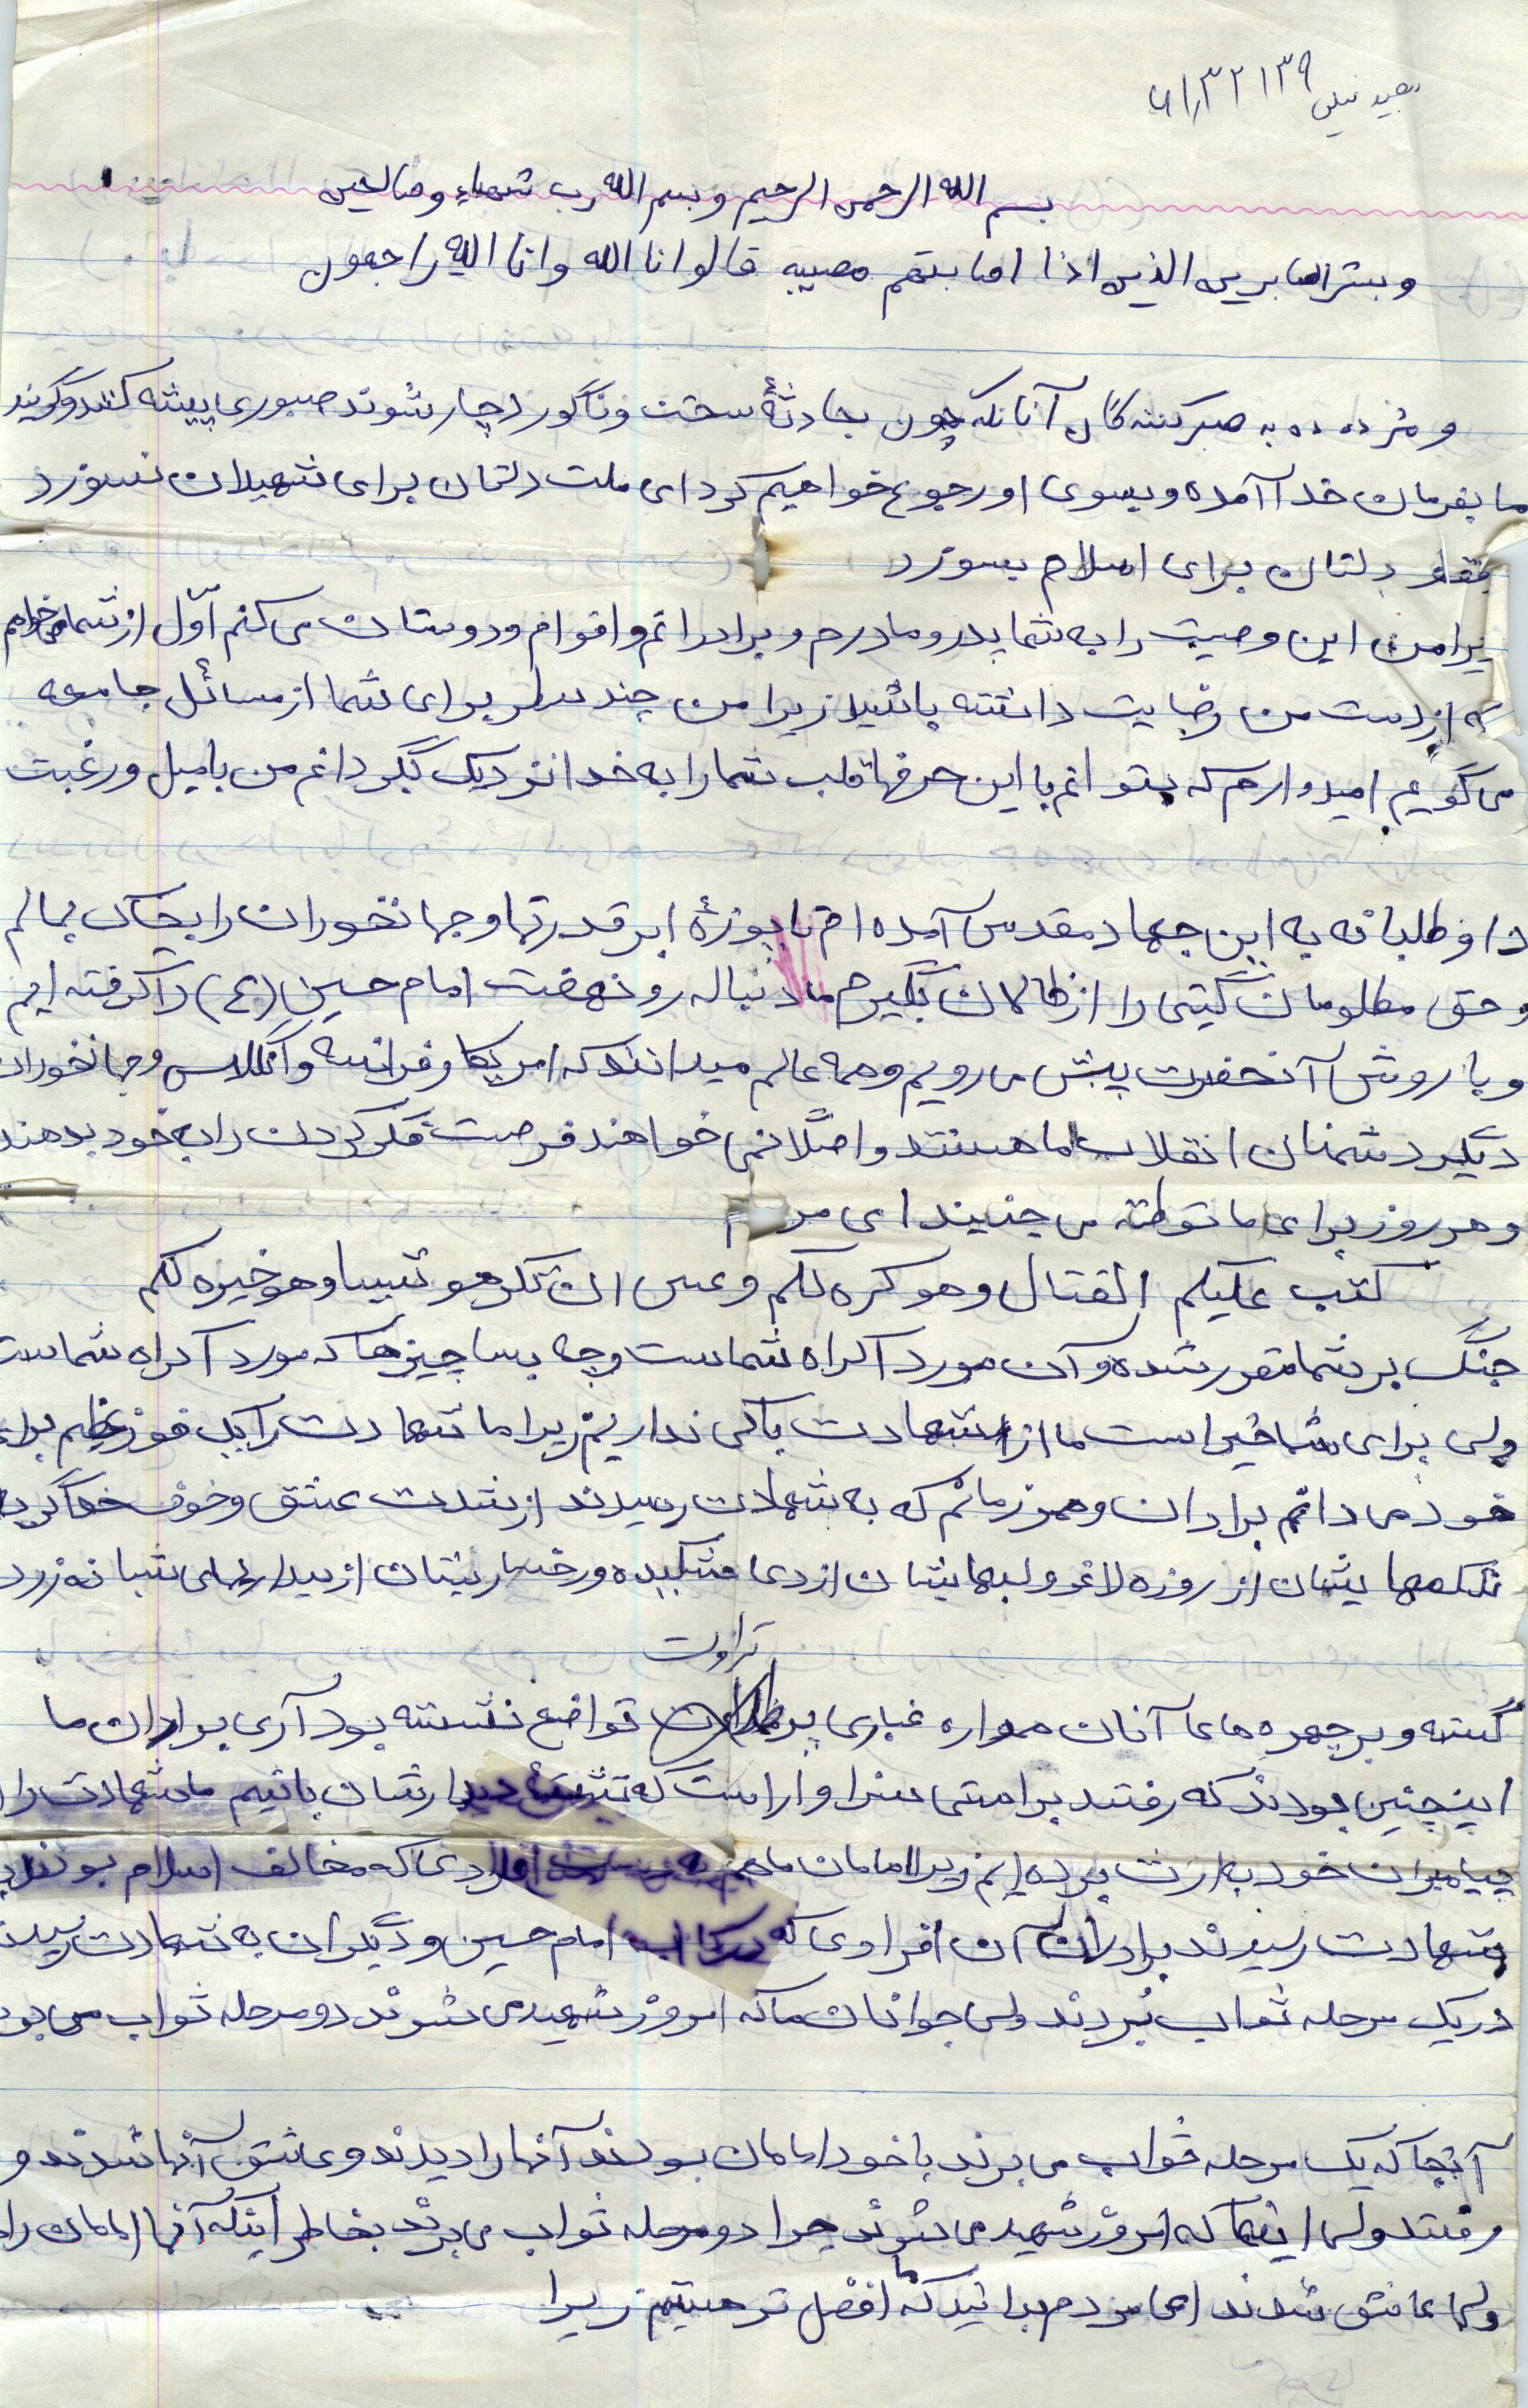 بسم الله الرحمن الرحیم و بسم الله رب شهداء و صالحین
و بشر الصابرین الذین اذا اصابتهم مصیبه قالوا انا الله و انا الیه راجعون
و مژده ده به صبر کننه گان آنانکه چون بحادثهٔ سخت و ناگور دچار شوند صبوری پیشه کنند و گویند
ما بفرمان خدا آمده و بسوی او رجوع خواهیم کرد ای ملت دلتان برای شهیدان نسوزد
دلتان برای اسلام بسوزد
زیرا من این وصیت را به شما پدر و مادرم و برادرانم و اقوام و دوستان می کنم اوّل از شما می خواهم
که از دست من رضایت داشته باشید زیرا من چند سطر برای شما از مسائل جامعه
می گویم امیدوارم که بتوانم با این حرفها قلب شما را به خدا نزدیک بگردانم من با میل و رغبت
داوطلبانه به این جهاد مقدس آمده ام تا پوزهٔ ابر قدرتها و جهانخوران را بخاک بمالم
و حق مظلومان گیتی را از ظالمان بگیرم ما دنباله رو نهضت امام حسین (ع) را گرفته ایم
و با روش آنحضرت پیش می رویم و همه عالم میدانند که امریکا و فرانسه و انگلاس و جهانخوران
دیگر دشمنان انقلاب ما هستند و اصلًا نمی خواهند فرصت فکر کردن را به خود بدهند
و هر روز برای ما توطئه می چینند ای مردم
کتب علیکم القتال و هو کره لکم و عسی ان تکرهو شیبا و هو خیره لکم
جنگ بر شما مقرر شده و آن مورد اکراه شماست و چه بسا چیزها که مورد اکراه شماست
ولی برای شما خیر است ما از شهادت باکی نداریم زیرا ما شهادت را یک فوز عظیم برای
خود می دانم برادران و همرزمانم که به شهادت رسیدند از شدت عشق و خوف خدا گریه
شکمهایشان از روزه لاغر و لبهایشان از دعا خشکیده و رخسارشان از بیداریهای شبانه زرد
تراوت
گشته و بر چهره های آنان همواره غباری پر تواضع نشسته بود آری برادران ما
اینچنین بودند که رفتند براستی سزاوار است که تشنهٔ دیدارشان باشیم ما شهادت را از
پیامبران خود به ارث برده ایم زیرا امامان ما هم به دست افرادی که مخالف اسلام بودند
بشهادت رسیدند برادران آن افرادی که در رکاب امام حسین و دیگران به شهادت رسیدند
در یک مرحله ثواب بُردند ولی جوانان ما که امروز شهید می شوند دو مرحله ثواب می برند
آنجا که یک مرحله ثواب می برند با خود امامان بودند آنها را دیدند و عاشق آنها شدند و
رفتند ولی اینها که امروز شهید می شوند چرا دو مرحله ثواب می برند بخاطر اینکه آنها امامان را
ولی عاشق شدند ای مردم بدانید که ما افضل تر هستیم زیرا